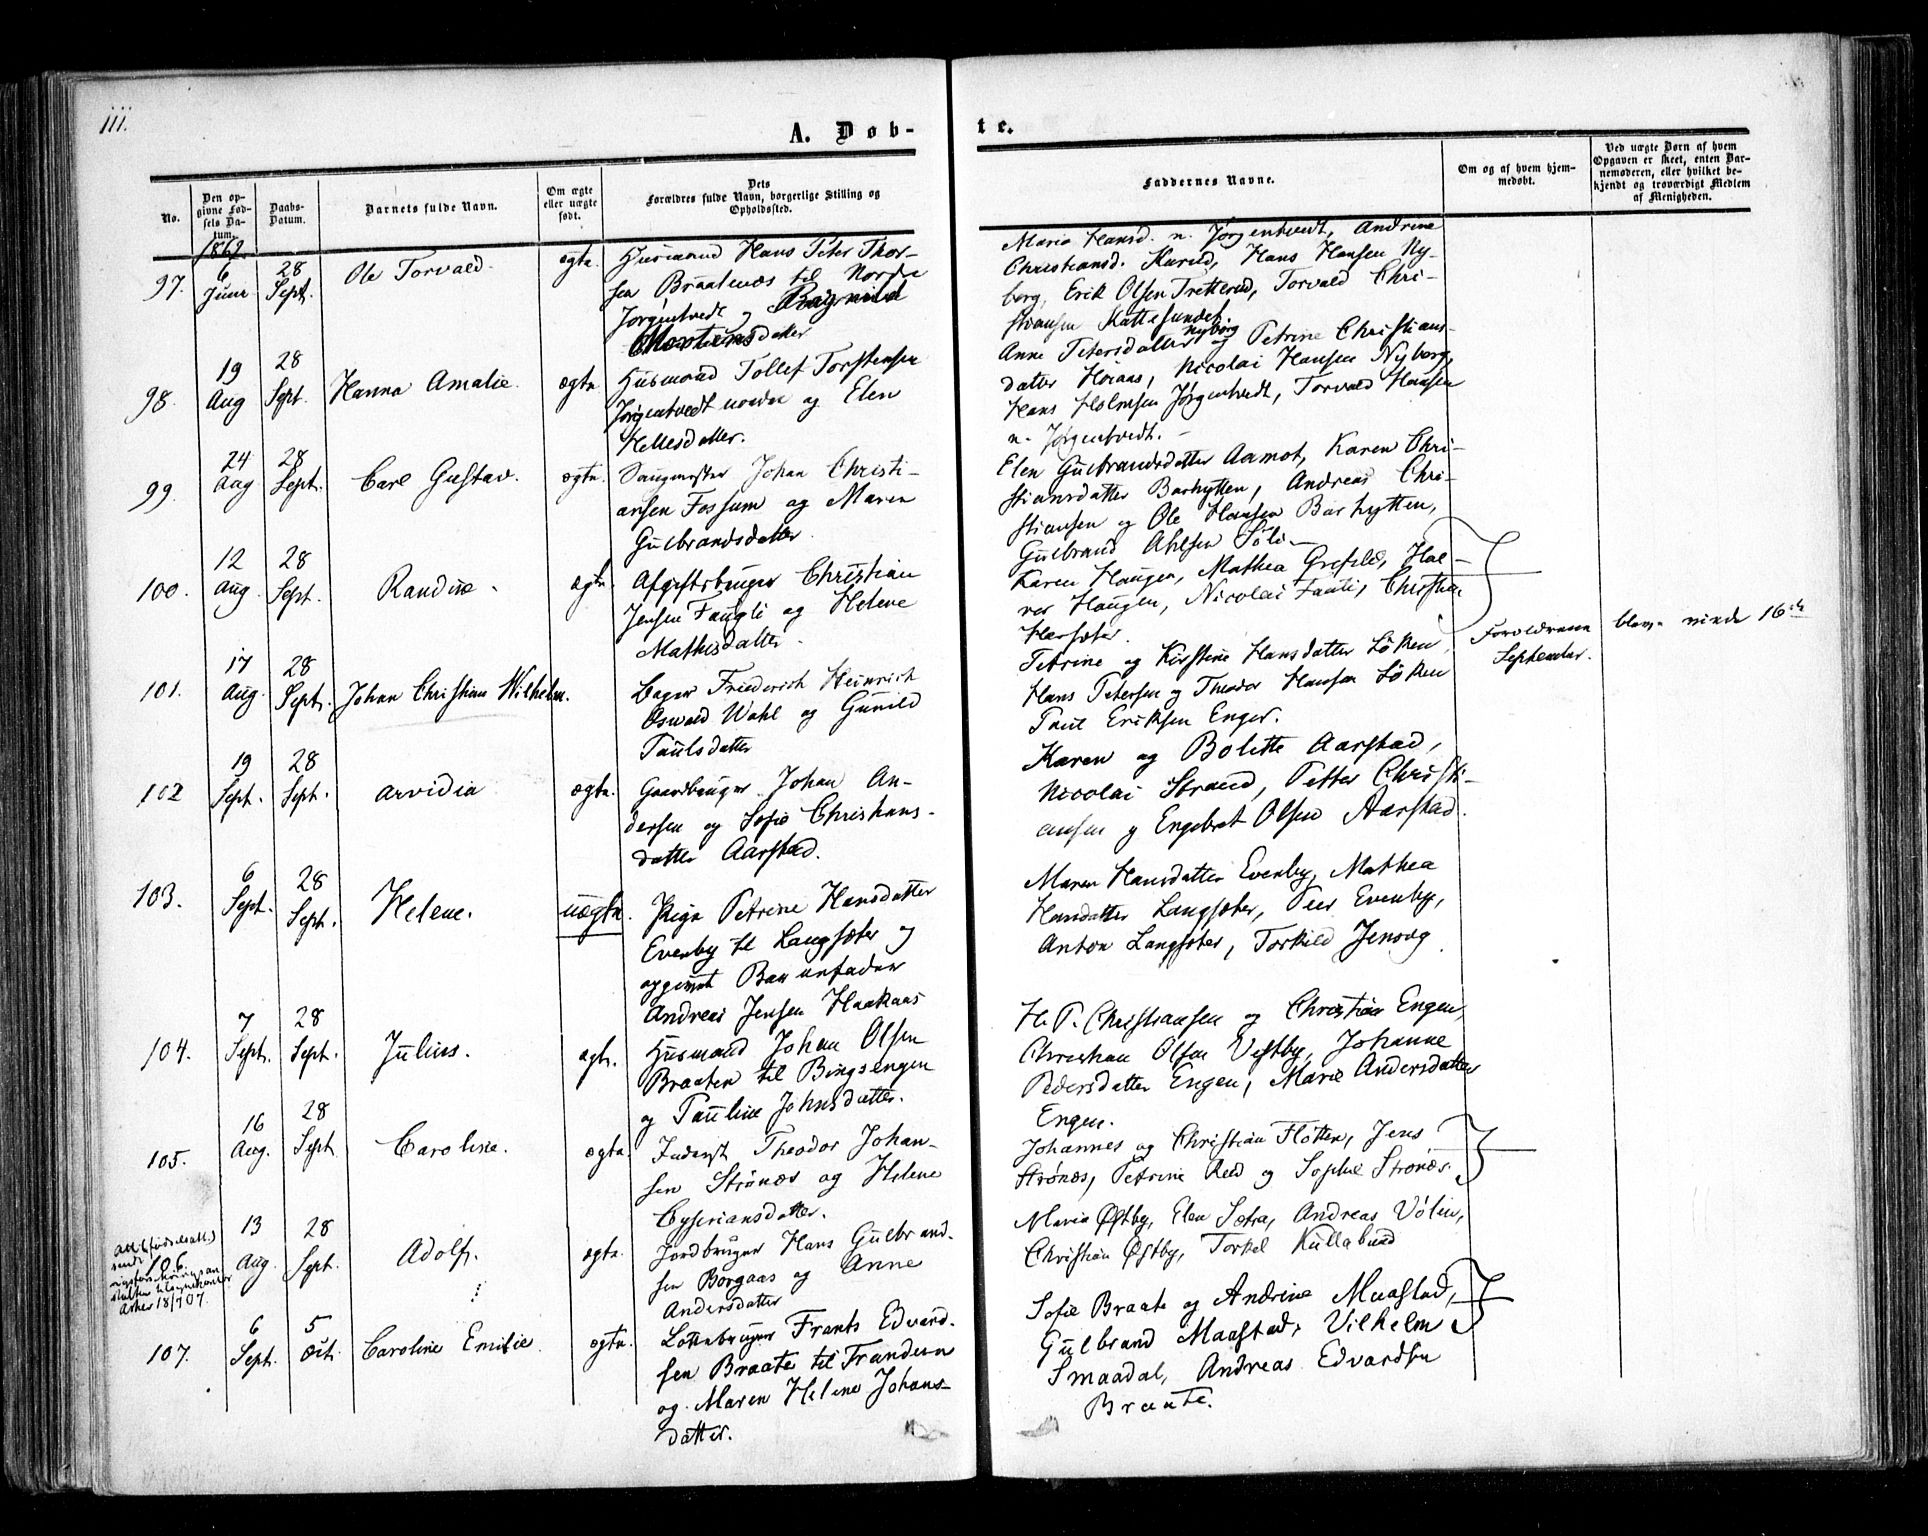 iii.
A. Døb-
te.
No.
Den op-
givne Fød-
sels Da-
tum.
Daabs-
Datum.
Barnets fulde Navn.
Om ægte
eller uægte
født.
Dets
Forældres fulde Navn, borgerlige Stilling og
Opholdssted.
Faddernes Navne.
Om og af hvem hjem-
medøbt.
Ved uægte Børn af hvem
Opgaven er skeet, enten Bar-
nemoderen, eller hvilket be-
kjendt og troværdigt Medlem
af Menigheden.
1862.
97. 6 Juni 28 Sept. Ole Torvald. ægte.
Husmand Hans Peter Thor-
sen Braatenæs til Nordre
Jörgentvedt og Ragnild
Mortensdatter
Maria Hansd. n. Jörgentvedt, Andrine
Christiansd. Karud, Hans Hansen Ny-
borg, Erik Olsen Tretterud, Torvald Chri-
stiansen Kattesundet
98. 19 Aug 28 Sept. Hanna Amalie. ægte.
Husmand Tollef Torstensen
Jörgentvedt nordre og Elen
Hellesdatter.
Anne Petersdatter Nyborg og Petrine Christians-
datter Horaas, Nicolai Hansen Nyborg,
Hans Holmsen Jørgentvedt, Torvald Hansen
n. Jørgentvedt. -
99. 24 Aug 28 Sept. Carl Gustav. ægte.
Saugmester Johan Christi-
ansen Fossum og Maren
Gulbrandsdatter.
Elen Gulbrandsdatter Aamot, Karen Chri-
stiansdatter Barhytten, Andreas Chri-
stiansen og Ole Hansen Barhytten,
Gulbrand Ahlsen Söli -
100. 12 Aug. 28 Sept. Randine. ægte.
Afgiftsbruger Christian
Jensen Faugli og Helene
Mathisdatter.
Karen Haugen, Mathea Grefsli, Hal-
vor Haugen, Nicolai Fauli, Christian
Hersæter.
101. 17 Aug. 28 Sept. Johan Christian Wilhelm.
Bager Friederich Heinrich
Oswald Wahl og Gunild
Paulsdatter
Petrine og Kirstine Hansdatter Löken,
Hans Petersen og Theodor Hansen Löken
Paul Eriksen Enger.
Forældrene blev viede 16de
September.
102 19 Sept. 28 Sept. Arvidia ægte.
Gaardbruger Johan An-
dersen og Sofie Christians-
datter Aarstad.
Karen og Bolette Aarstad,
Nicolai Strand, Petter Christi-
ansen og Engebret Olsen Aarstad.
103. 6 Sept. 28 Sept. Helene. uægte.
Pige Petrine Hansdatter
Evenby til Langsæter og
opgivet Barnefader
Andreas Jensen Haakaas
Maren Hansdatter Evenby, Mathea
Hansdatter Langsæter, Peer Evenby,
Anton Langsæter, Torkild
104. 7 Sept. 28 Sept. Julius. ægte.
Husmand Johan Olsen
Braaten til Bingsengen
og Pauline Johnsdatter.
H. P. Christiansen og Christian Engen,
Christian Olsen Vestby, Johanne
Pedersdatter Engen, Marie Andersdatter
Engen.
105. 16 Aug. 28 Sept. Caroline. ægte.
Inderst Theodor Johan-
sen Strönæs og Helene
Cyseriansdatter.
Johannes og Christian Flöten, Jens
Strønæs, Petrine Reed og Sophie Strönæs.
106. 13 Aug. 28 Sept. Adolf. ægte.
Jordbruger Hans Gulbrand-
sen Borgaas og Anne
Andersdatter
Maria Østby, Elen Sætra, Andreas Völin,
Christian Østby, Torkel Kullebund
Att. (födselsatt.)
sendt
Asker 18/7 07.
107. 6 Sept. 5 Oct. Caroline Emilie. ægte.
Lottenbruger Frants Edvard-
sen Braate til Tranderu
og Maren Helene Johans-
datter.
Sofie Braate og Andrine Maastad,
Gulbrand Maastad, Vilhelm
Smaadal, Andreas Edvardsen
Braate.